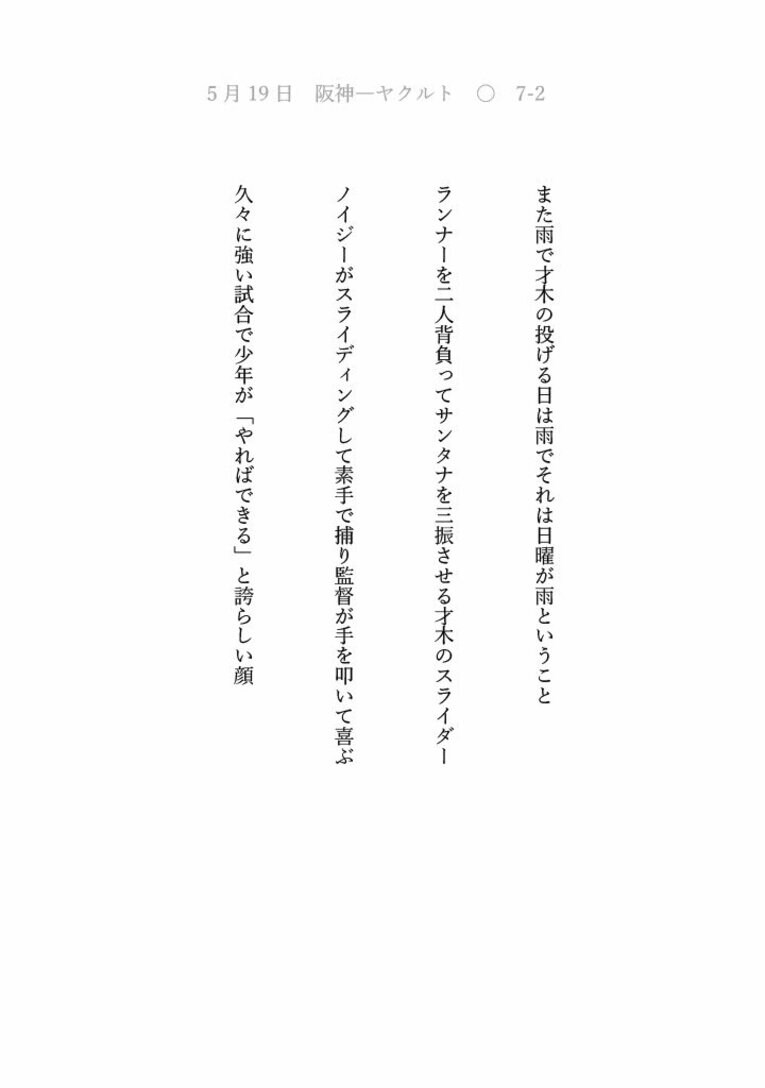 5月19日　阪神―ヤクルト　〇　7-2
また雨で才木の投げる日は雨でそれは日曜が雨ということ
ランナーを二人背負ってサンタナを三振させる才木のスライダー
ノイジーがスライディングして素手で捕り監督が手を叩いて喜ぶ
久々に強い試合で少年が「やればできる」と誇らしい顔